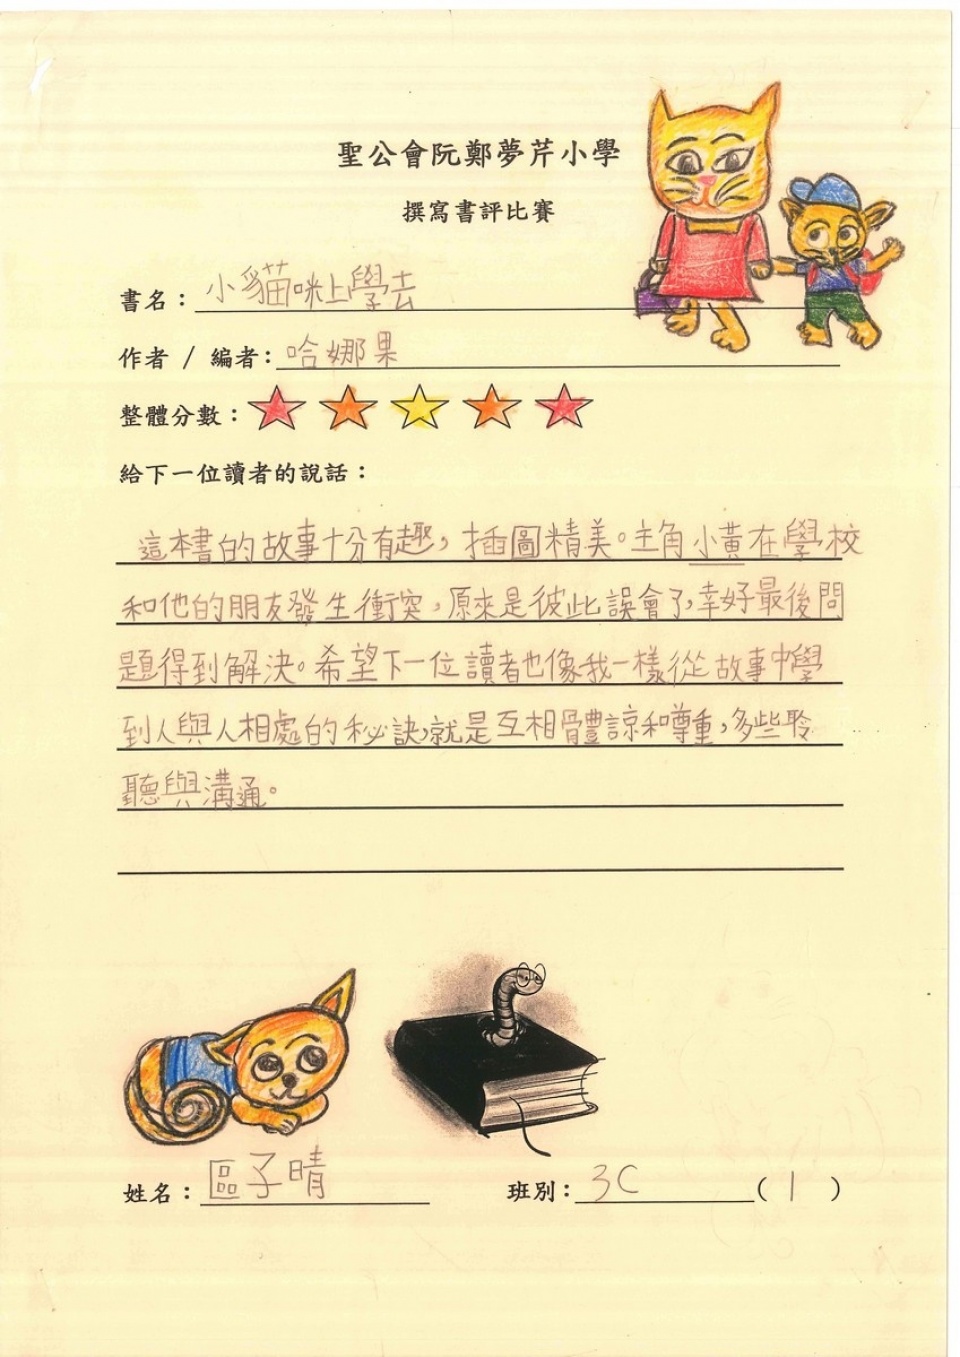 聖公會阮鄭夢芹小學
撰寫書評比賽
書名：小貓咪上學去
作者 / 編者：哈娜果
整體分數：
給下一位讀者的說話：
這本書的故事十分有趣，插圖精美。主角小黃在學校
和他的朋友發生衝突，原來是彼此誤會了，幸好最後問
題得到解決。希望下一位讀者也像我一樣從故事中學
到人與人相處的秘訣，就是互相體諒和尊重，多些聆
聽與溝通。
姓名：區子晴 班別：3C (1)